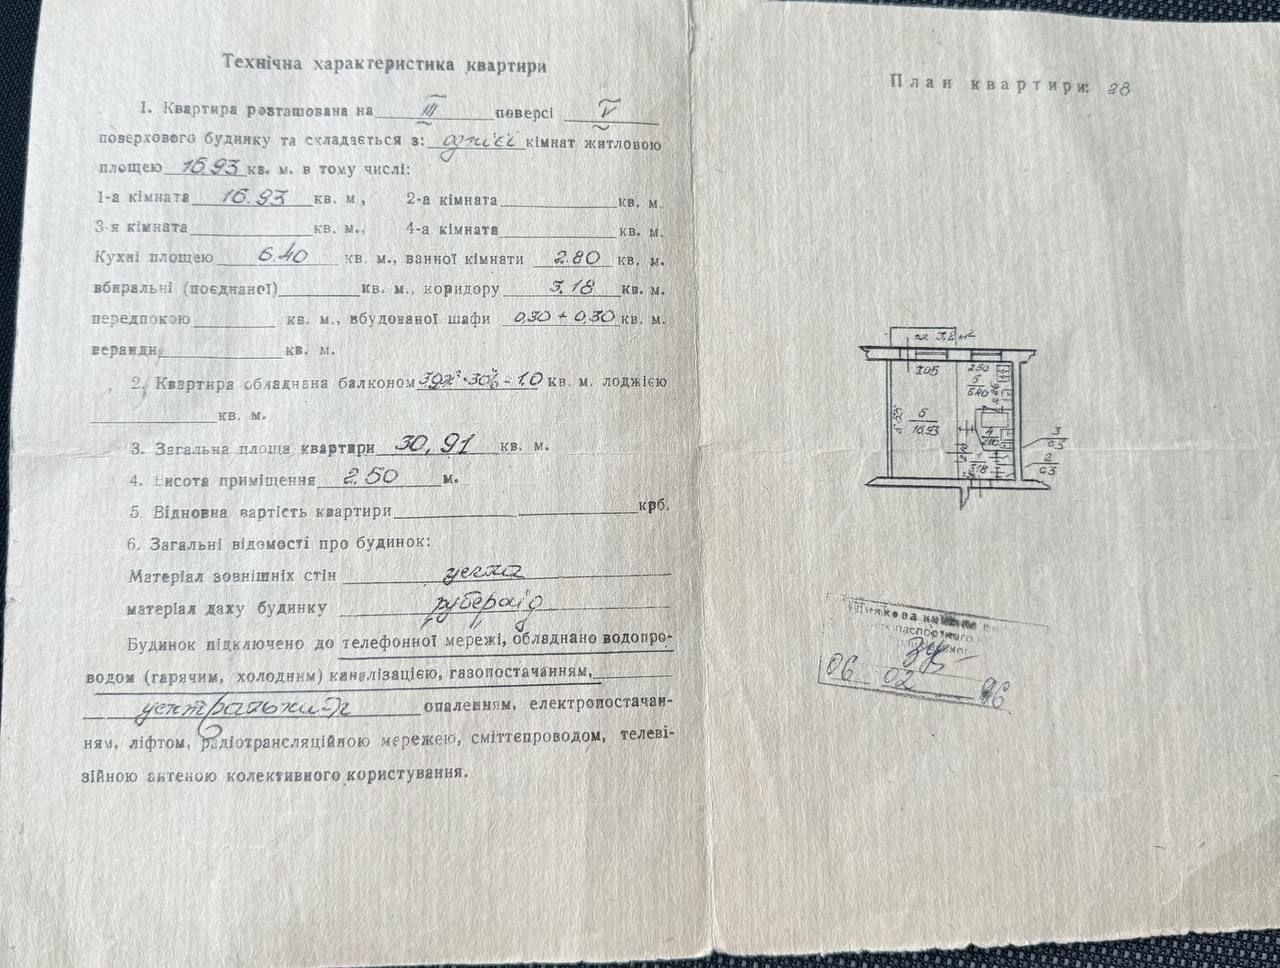 Технічна характеристика квартири
1. Квартира розташована на III поверсі V
поверхового будинку та складається з: однієї кімнат житловою
площею 16.93 кв. м. в тому числі:
1-а кімната 16.93 кв. м, 2-а кімната кв. м.
3-я кімната кв. м., 4-а кімната кв. м.
Кухні площею 6.40 кв. м., ванної кімнати 2.80 кв. м.
вбиральні (поєднаної) кв. м., коридору 3.18 кв. м.
передпокою кв. м., вбудованої шафи 0,30 + 0,30 кв. м.
веранди кв. м.
2. Квартира обладнана балконом 30% = 1.0 кв. м. лоджією
кв. м.
3. Загальна площа квартири 30,91 кв. м.
4. Висота приміщення 2.50 м.
5. Відновна вартість квартири крб.
6. Загальні відомості про будинок:
Матеріал зовнішніх стін цегла
матеріал даху будинку рубероїд
Будинок підключено до телефонної мережі, обладнано водопро-
водом (гарячим, холодним) каналізацією, газопостачанням,
центральним опаленням, електропостачан-
ням, ліфтом, радіотрансляційною мережею, сміттепроводом, телеві-
зійною антеною колективного користування.
План квартири: 28
3,2 м²
3.05
2.50
5
6.40
6
16.93
4
2.80
1
3.18
3
0.3
2
0.3
06 02 96